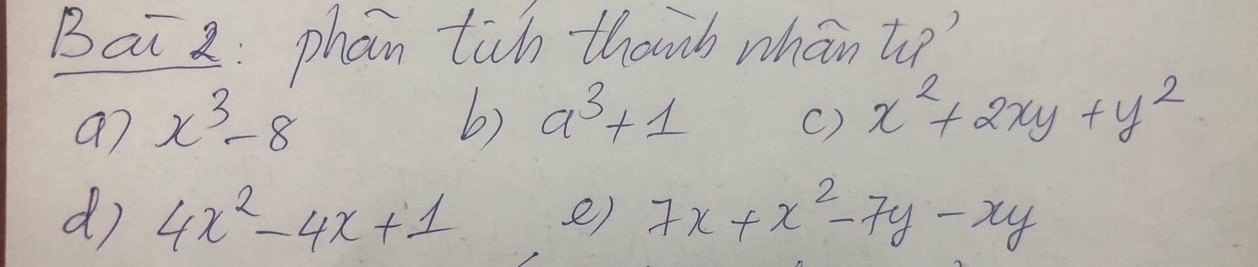 Bài 2: phân tích thành nhân tử
a) x³ - 8 b) a³ + 1 c) x² + 2xy + y²
d) 4x² - 4x + 1 e) 7x + x² - 7y - xy